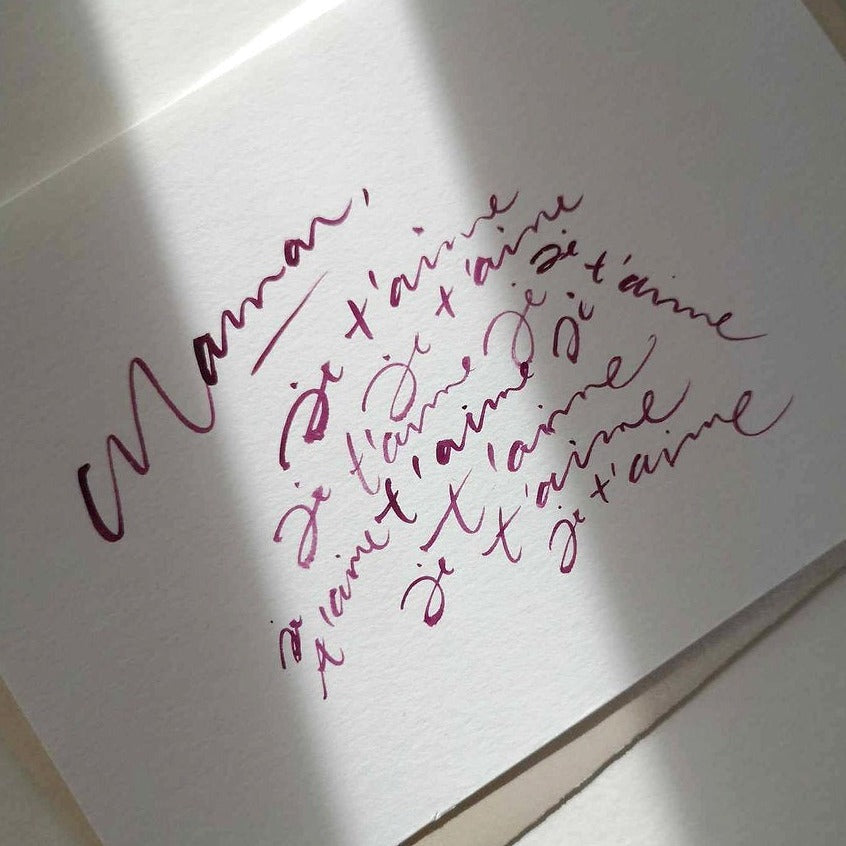 Maman,
je t'aime
je t'aime
je t'aime je
t'aime je t'aime
je t'aime je
t'aime
je t'aime
je t'aime